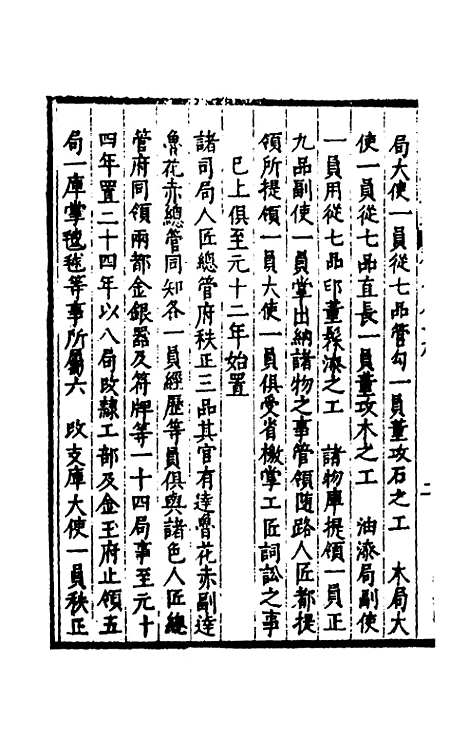 局大使一員從七品管勾一員董攻石之工　木局大
使一員從七品直長一員董攻木之工　油漆局副使
一員用從七品印董髹漆之工　諸物庫提領一員正
九品副使一員掌出納諸物之事管領随路人匠都提
領所提領一員大使一員俱受省檄掌工匠詞訟之事
已上俱至元十二年始置
諸司局人匠總管府秩正三品其官有逹魯花赤副逹
魯花赤總管同知各一員經歷等員俱與諸色人匠總
管府同領兩都金銀器及符牌等一十四局事至元十
四年置二十四年以八局改隸工部及金玉府止領五
局一庫掌氊毯等事所屬六　改支庫大使一員秩正